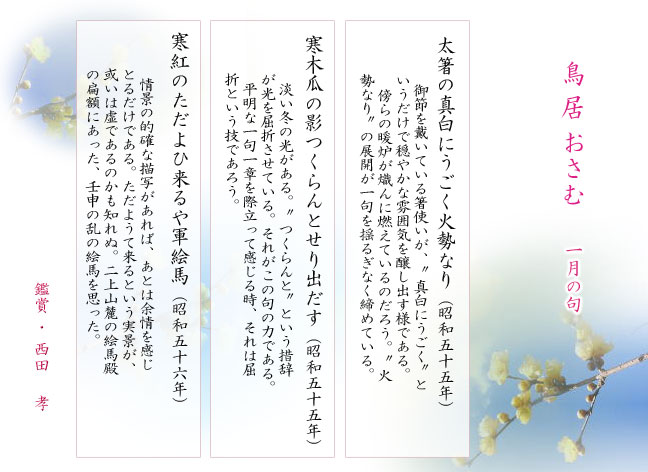 鳥居おさむ 一月の句
太箸の真白にうごく火勢なり(昭和五十五年)
御節を戴いている箸使いが、〝真白にうごく〟と
いうだけで穏やかな雰囲気を醸し出す様である。
傍らの暖炉が熾んに燃えているのだろう。〝火
勢なり〟の展開が一句を揺るぎなく締めている。
寒木瓜の影つくらんとせり出だす(昭和五十五年)
淡い冬の光がある。〝つくらんと〟という措辞
が光を屈折させている。それがこの句の力である。
平明な一句一章を際立って感じる時、それは屈
折という技であろう。
寒紅のただよひ来るや軍絵馬(昭和五十六年)
情景の的確な描写があれば、あとは余情を感じ
とるだけである。ただようて来るという実景が、
或いは虚であるのかも知れぬ。二上山麓の絵馬殿
の扁額にあった、壬申の乱の絵馬を思った。
鑑賞・西田 孝